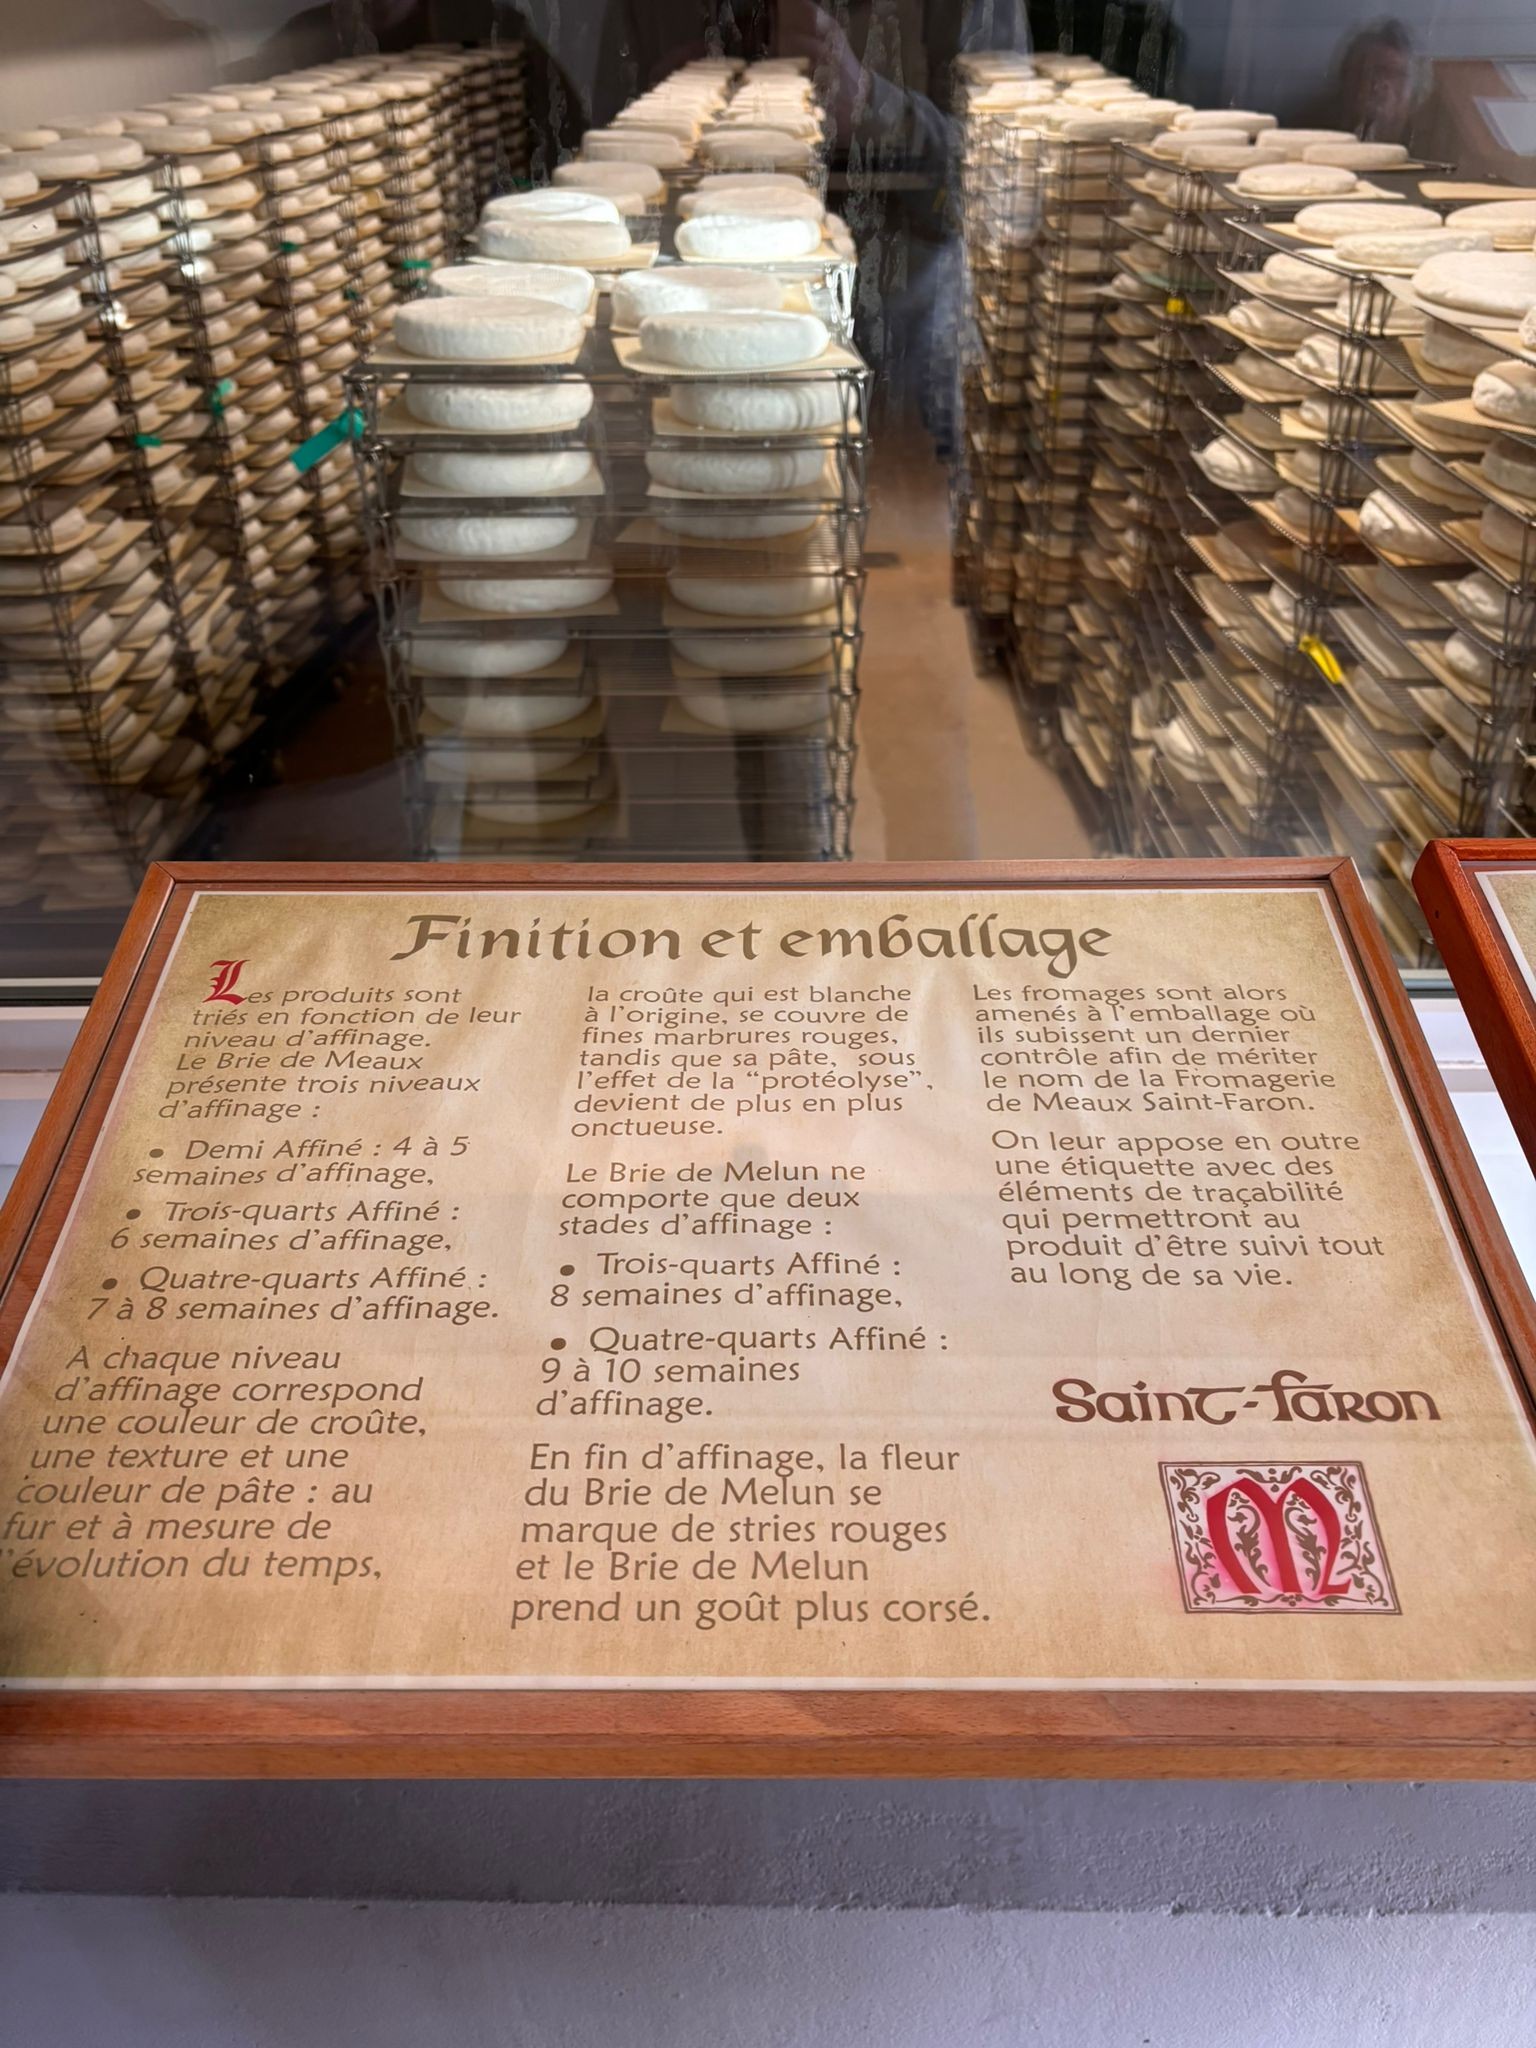 Finition et emballage
Les produits sont
triés en fonction de leur
niveau d'affinage.
Le Brie de Meaux
présente trois niveaux
d'affinage :
• Demi Affiné : 4 à 5
semaines d'affinage,
• Trois-quarts Affiné :
6 semaines d'affinage,
• Quatre-quarts Affiné :
7 à 8 semaines d'affinage.
A chaque niveau
d'affinage correspond
une couleur de croûte,
une texture et une
couleur de pâte : au
fur et à mesure de
l'évolution du temps,
la croûte qui est blanche
à l'origine, se couvre de
fines marbrures rouges,
tandis que sa pâte, sous
l'effet de la “protéolyse”,
devient de plus en plus
onctueuse.
Le Brie de Melun ne
comporte que deux
stades d'affinage :
• Trois-quarts Affiné :
8 semaines d'affinage,
• Quatre-quarts Affiné :
9 à 10 semaines
d'affinage.
En fin d'affinage, la fleur
du Brie de Melun se
marque de stries rouges
et le Brie de Melun
prend un goût plus corsé.
Les fromages sont alors
amenés à l'emballage où
ils subissent un dernier
contrôle afin de mériter
le nom de la Fromagerie
de Meaux Saint-Faron.
On leur appose en outre
une étiquette avec des
éléments de traçabilité
qui permettront au
produit d'être suivi tout
au long de sa vie.
Saint-Faron
M